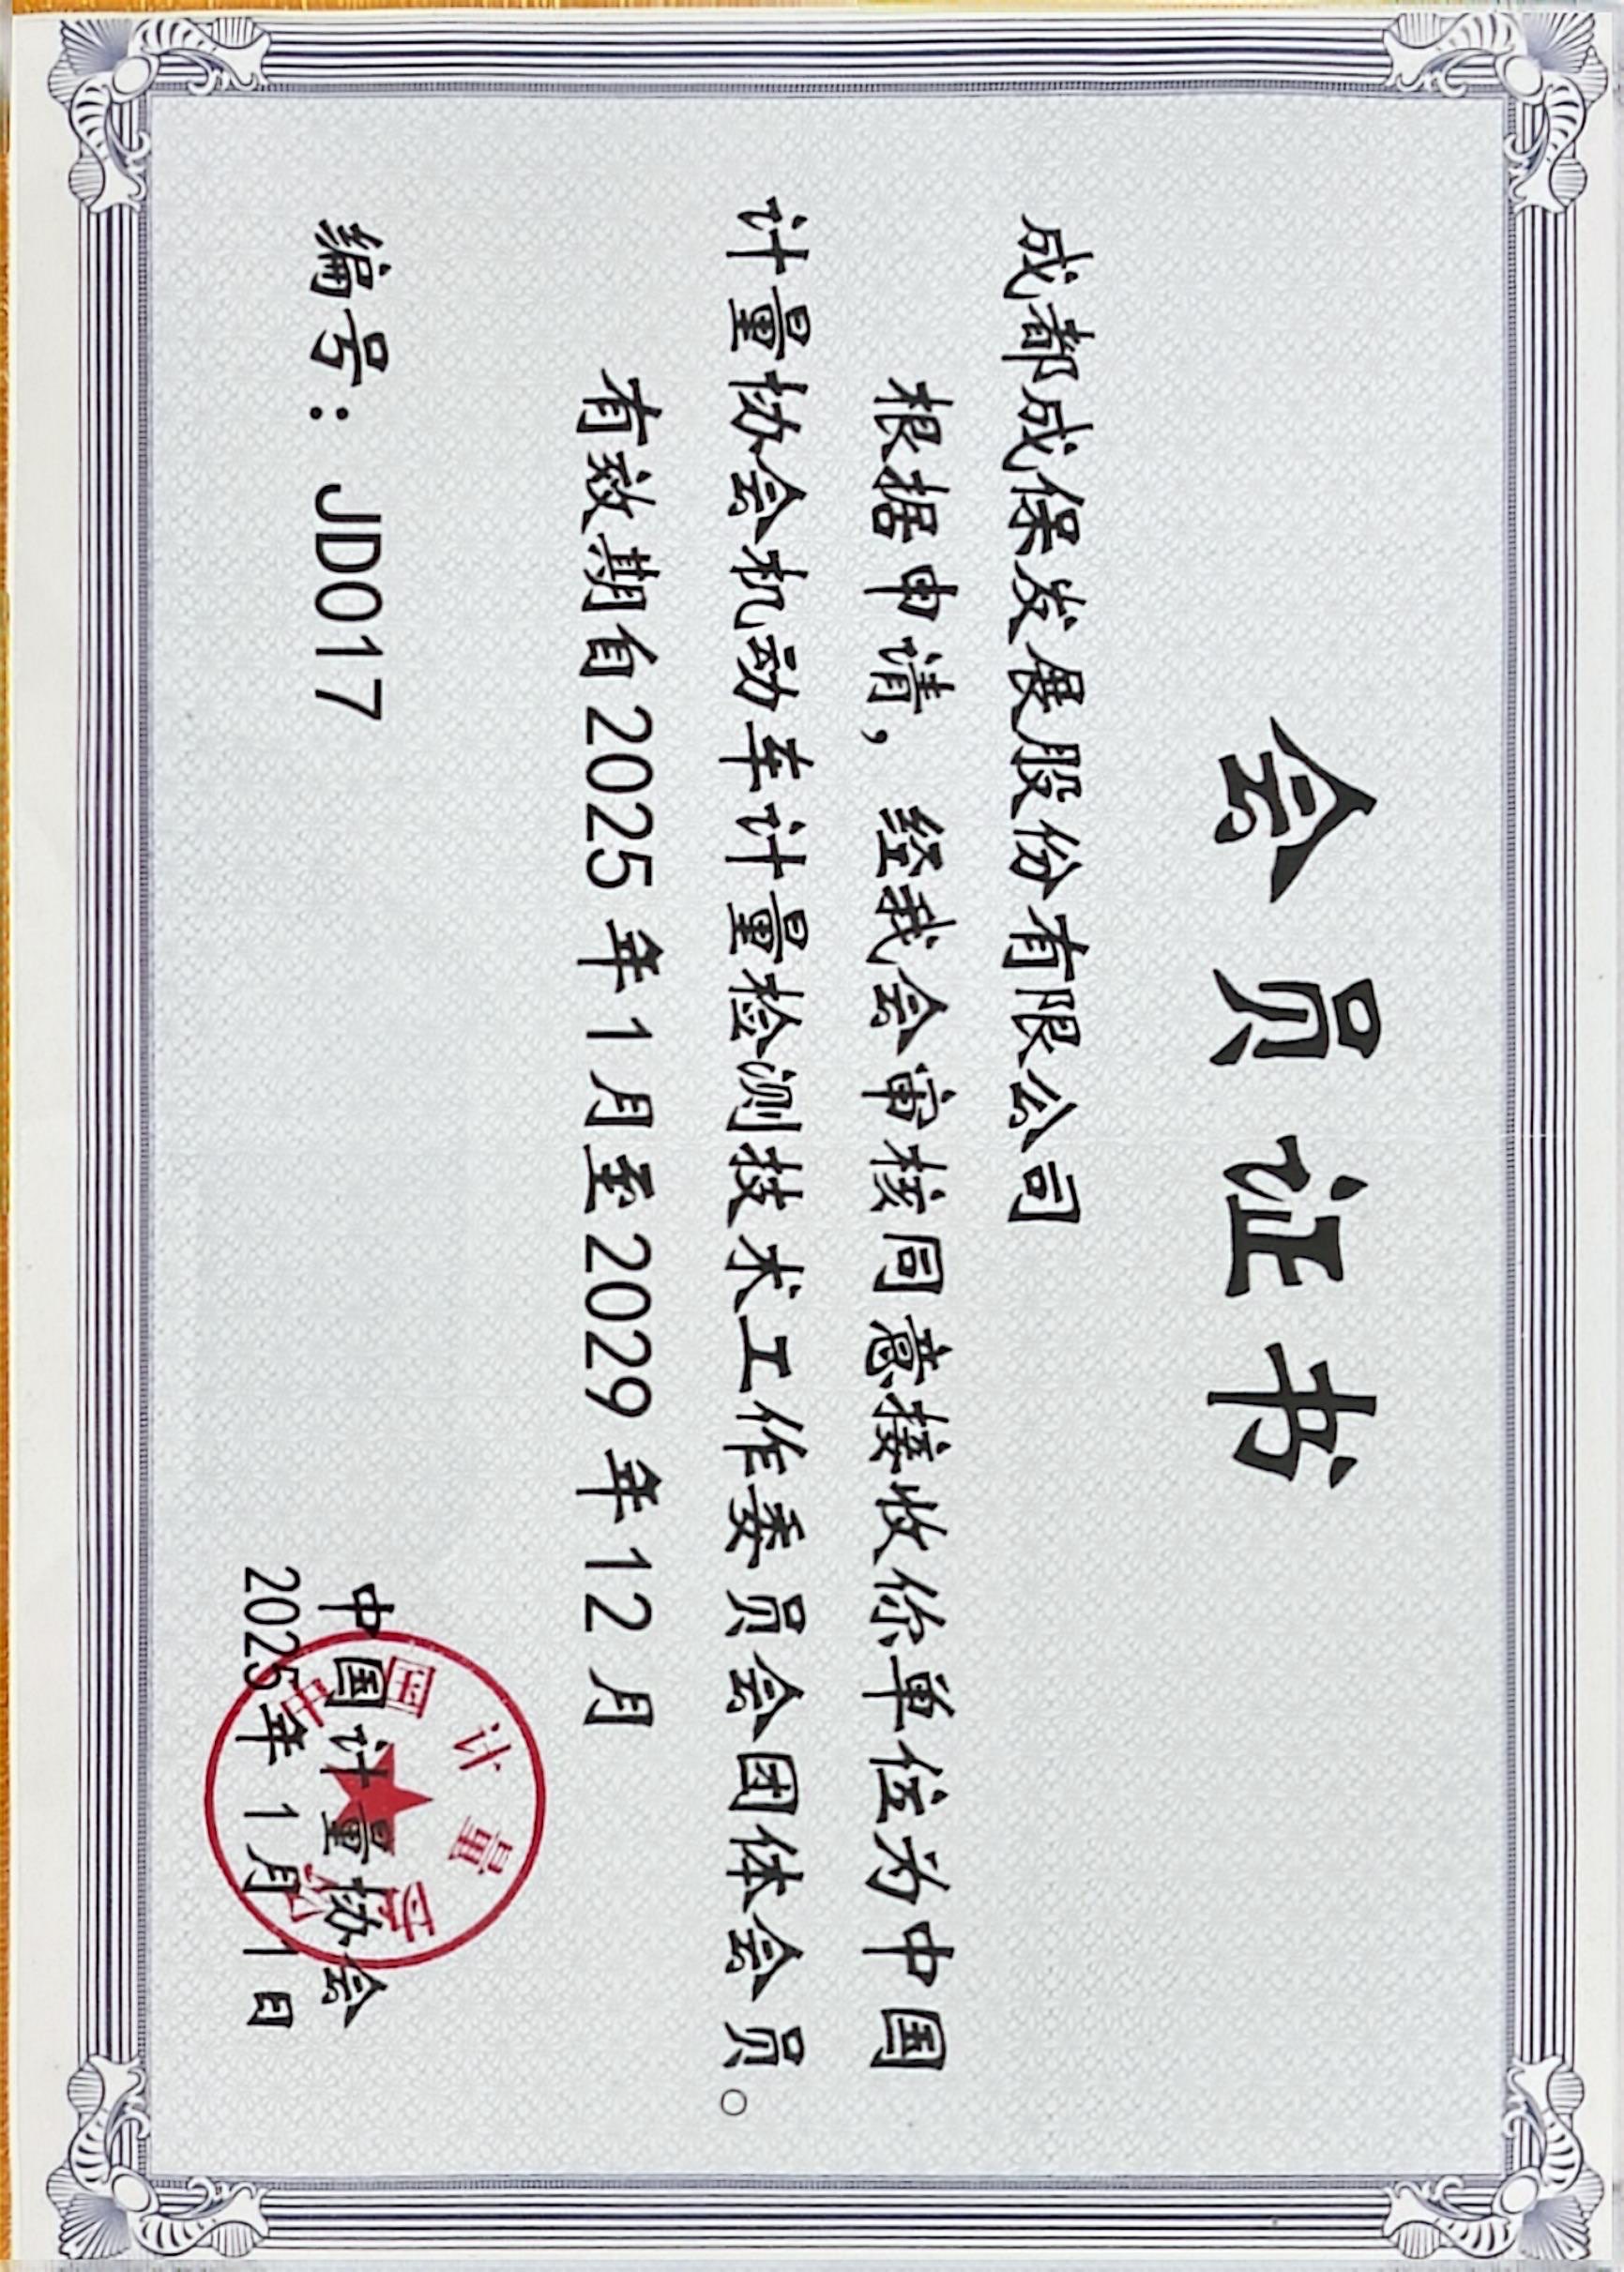 会员证书
成都成保发展股份有限公司
根据申请，经我会审核同意接收你单位为中国
计量协会机动车计量检测技术工作委员会团体会员。
有效期自2025年1月至2029年12月
编号：JD017
中国计量协会
2025年1月1日
中国计量协会